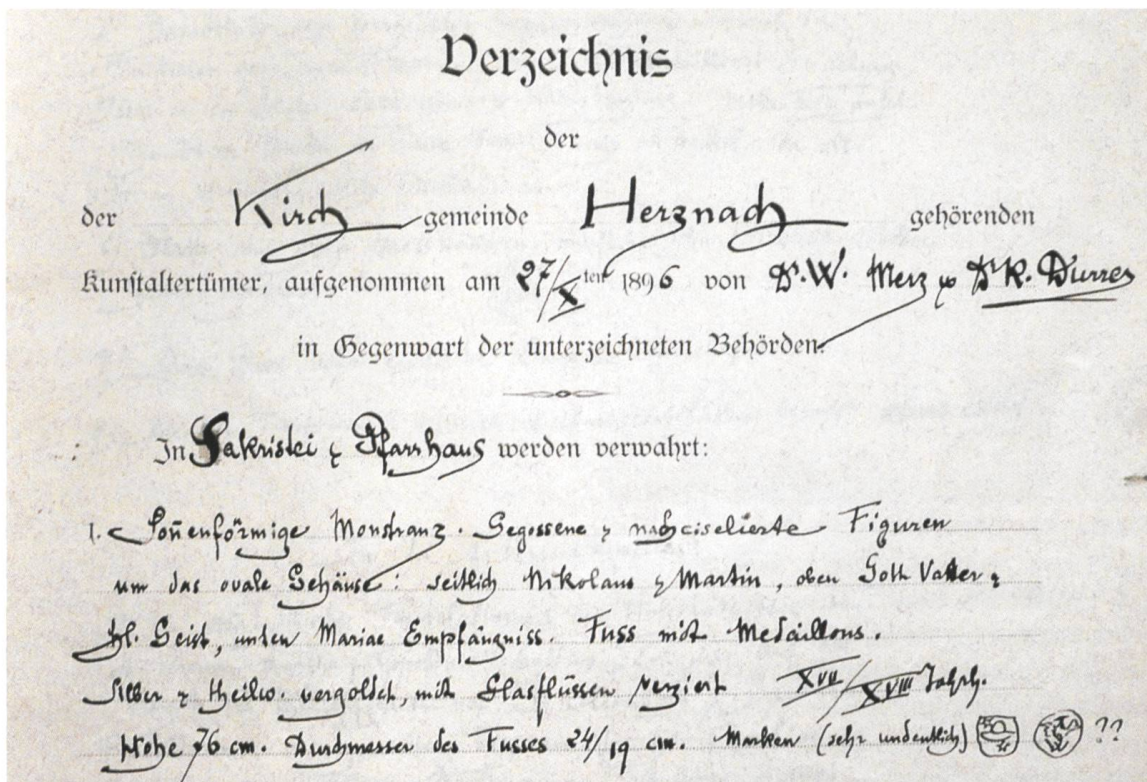 Verzeichnis
der
der Kirch gemeinde Herznach gehörenden
Kunstaltertümer, aufgenommen am 27/X ten 1896 von Dr. W. Merz & Dr R. Durrer
in Gegenwart der unterzeichneten Behörden.
In Sakristei & Pfarrhaus werden verwahrt:
1. Soñenförmige Monstranz. Gegossene & nachciselierte Figuren
um das ovale Gehäuse: seitlich Nikolaus & Martin, oben Gott Vater &
hl. Geist, unten Mariae Empfängniss. Fuss mit Medaillons.
Silber & theilw. vergoldet, mit Glasflüssen verziert XVII/XVIII Jahrh.
Höhe 76 cm. Durchmesser des Fusses 24/19 cm. Marken (sehr undeutlich) ??